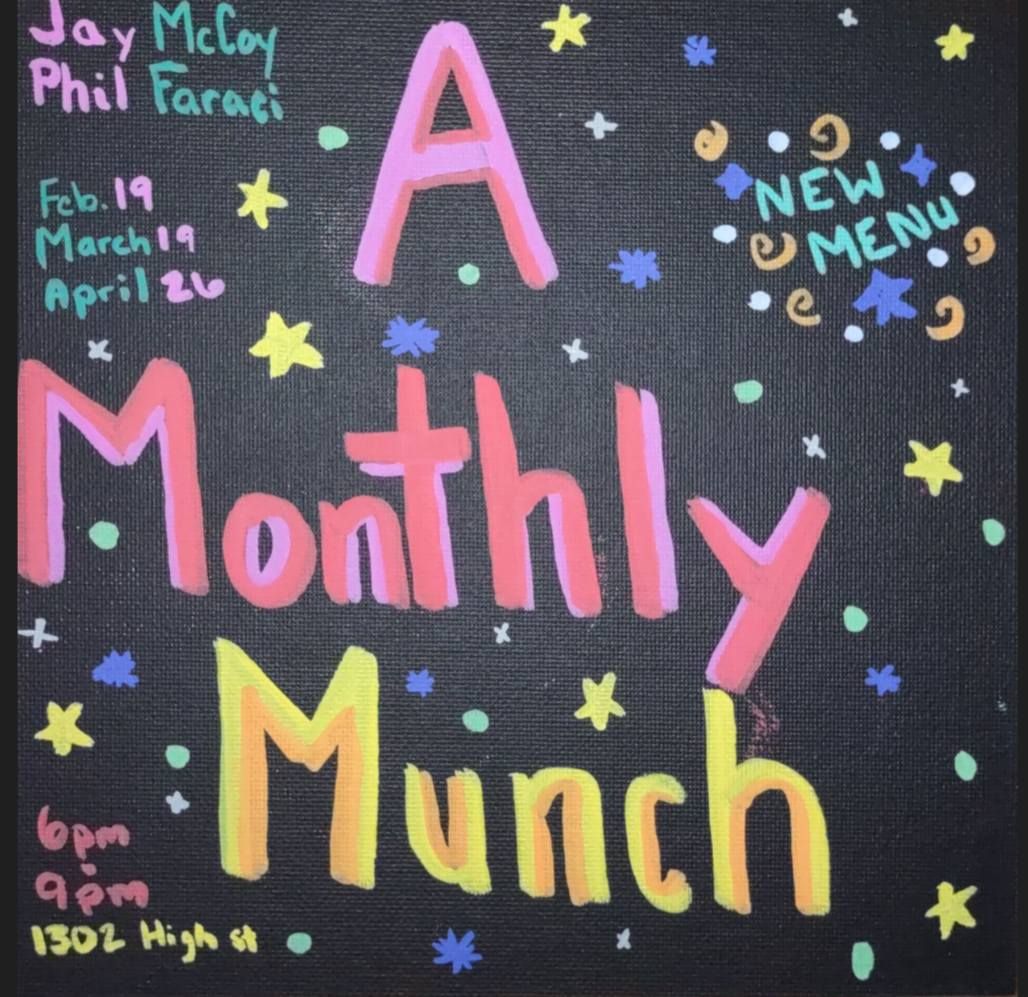 Jay McCoy
Phil Faraci
Feb. 19
March 19
April 26
A
NEW
MENU
Monthly
Munch
6pm
9pm
1302 High st